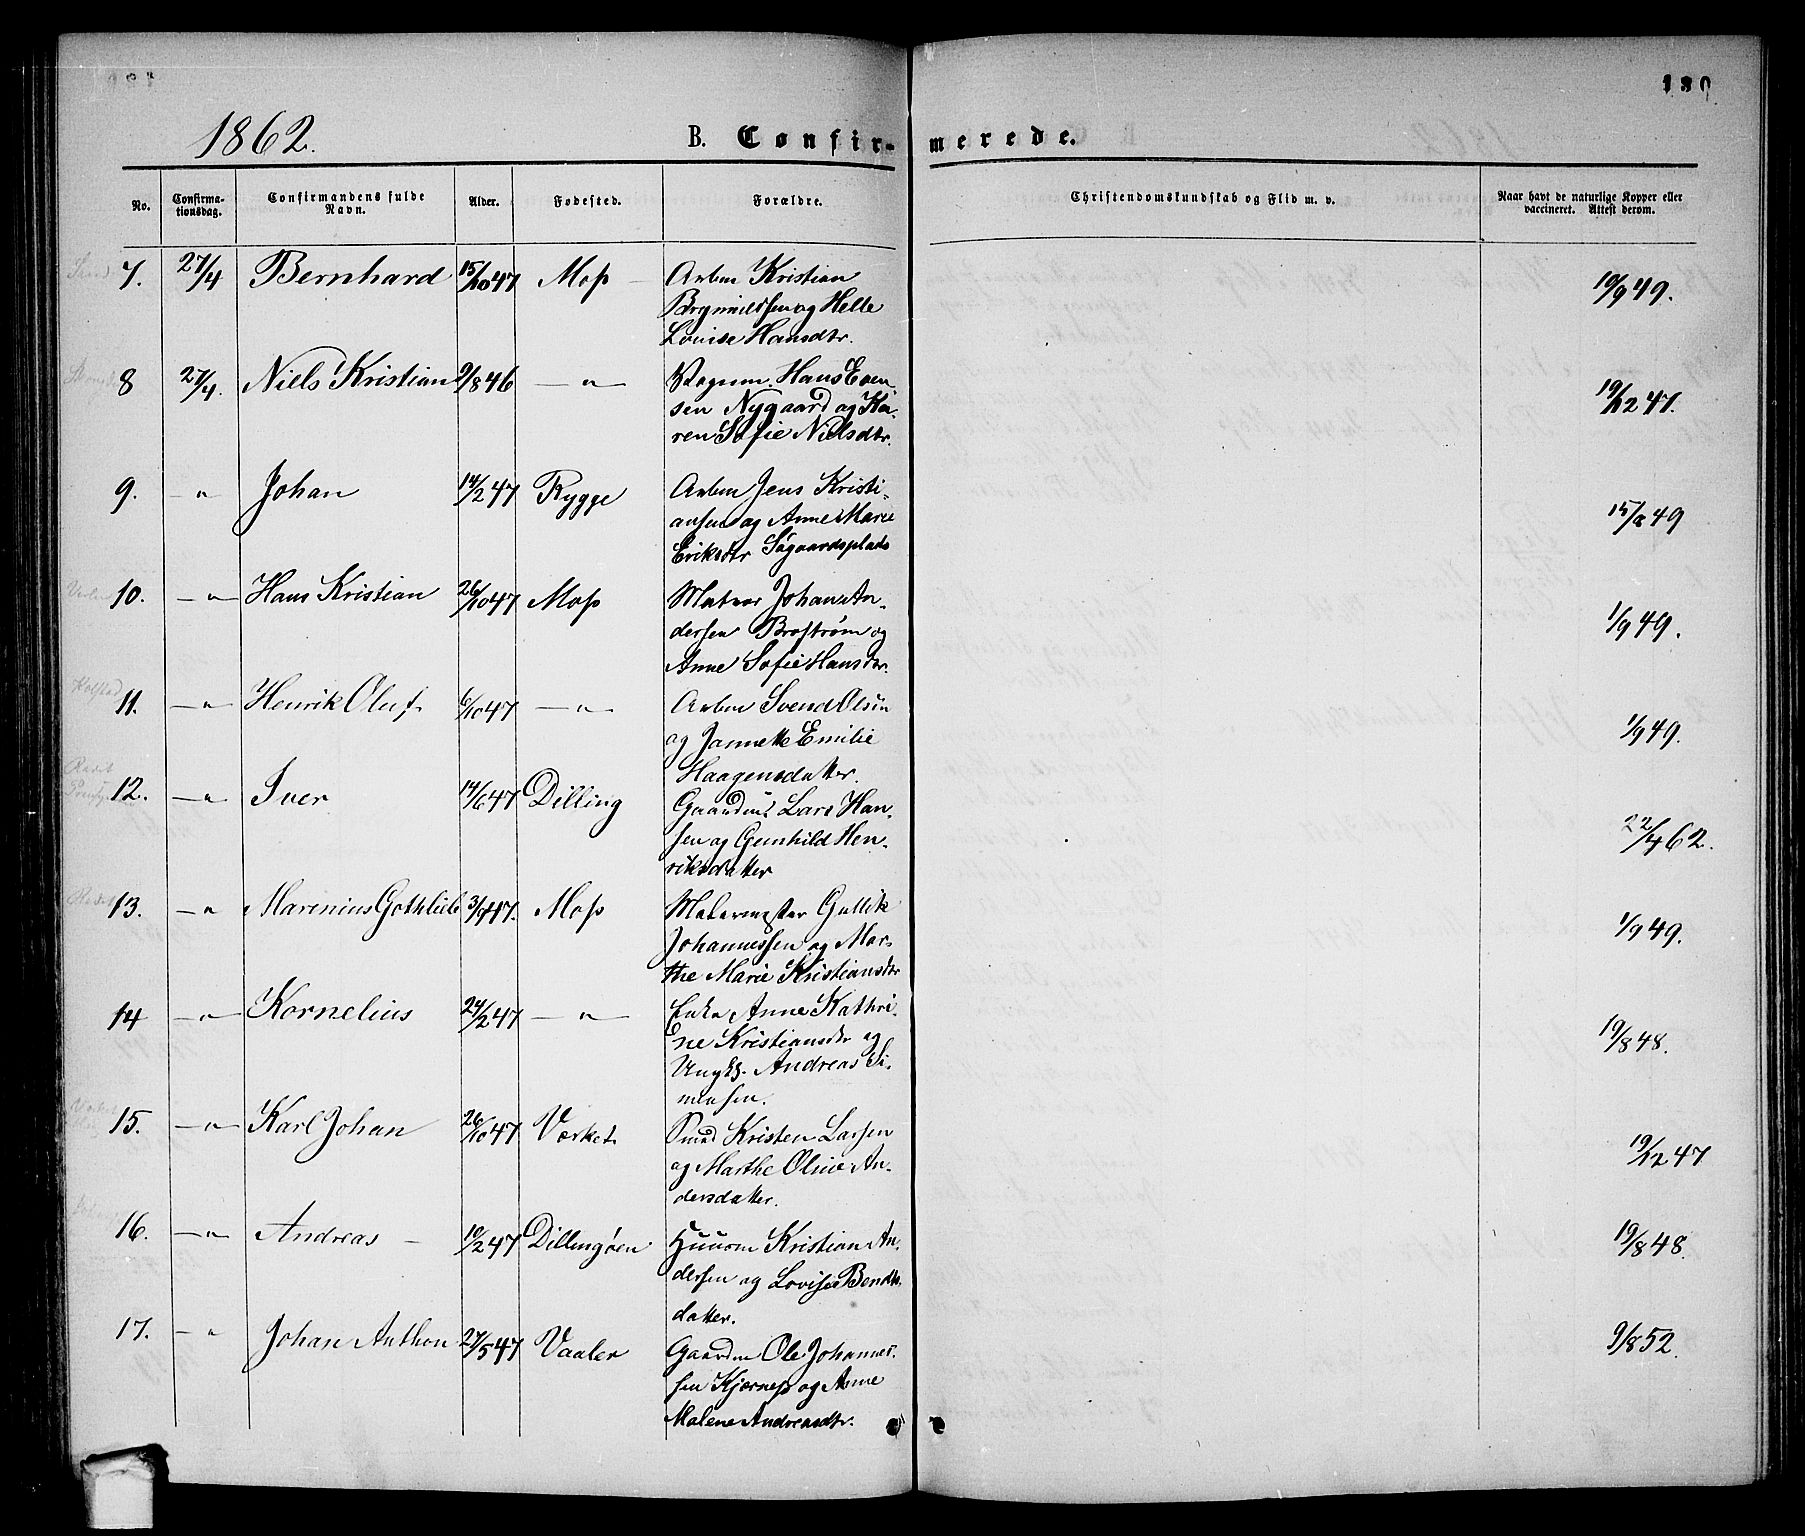 180
1862.
B. Confirmerede.
No. Confirmationsdag. Confirmandens fulde Navn. Alder. Fødested. Forældre. Christendomskundskab og Flid m. v. Naar havt de naturlige Kopper eller vaccineret. Attest derom.
7. 27/4 Bernhard 15/10 47 Moss Arbm Kristian 19/9 49.
og Helle
Louise Hansdtr.
8 27/4. Niels Kristian 9/8 46 — " — Hans Even- 19/12 47.
sen Nygaard og Ka-
ren Sofie Nielsdtr.
9. " Johan 14/2 47 Rygge Arbm Jens Kristi- 15/8 49
ansen og Anne Marie
Eriksdtr Søgaardsplads
10. — " — Hans Kristian 26/10 47 Moss Matros Johan An- 1/9 49.
dersen Brostrøm og
Anne Sofie Hansdtr.
Holstad
11. — " — Henrik Oluf 6/10 47 — " — Arbm Svend Olsen 1/9 49.
og Jannette Emilie
Haagensdatter.
12. — " — Iver 14/6 47 Dilling Gaardm. Lars Han- 22/4 62.
sen og Gunhild Hen-
riksdatter
13. — " Marinius Gothlieb 3/9 47. Moss Malermester Gullik 1/9 49.
Johannessen og Mar-
the Marie Kristiansdtr
14 — " — Kornelius 24/2 47 — " — Enke Anne Kathri- 19/8 48.
ne Kristiansdtr og
Ungk. Andreas Si-
mensen.
15. — " — Karl Johan 26/10 47 Værket Smed Kristen Larsen 19/12 47
og Marthe Oline An-
dersdatter.
16. — " — Andreas – 10/2 47 Dillingøen Huusm Kristian An- 19/8 48.
dersen og Lovise Bendts-
datter.
17. — " Johan Anthon 27/5 47 Vaaler Gaardm Ole Johannes- 9/8 52.
sen Kjærnes og Anne
Malene Andreasdtr.